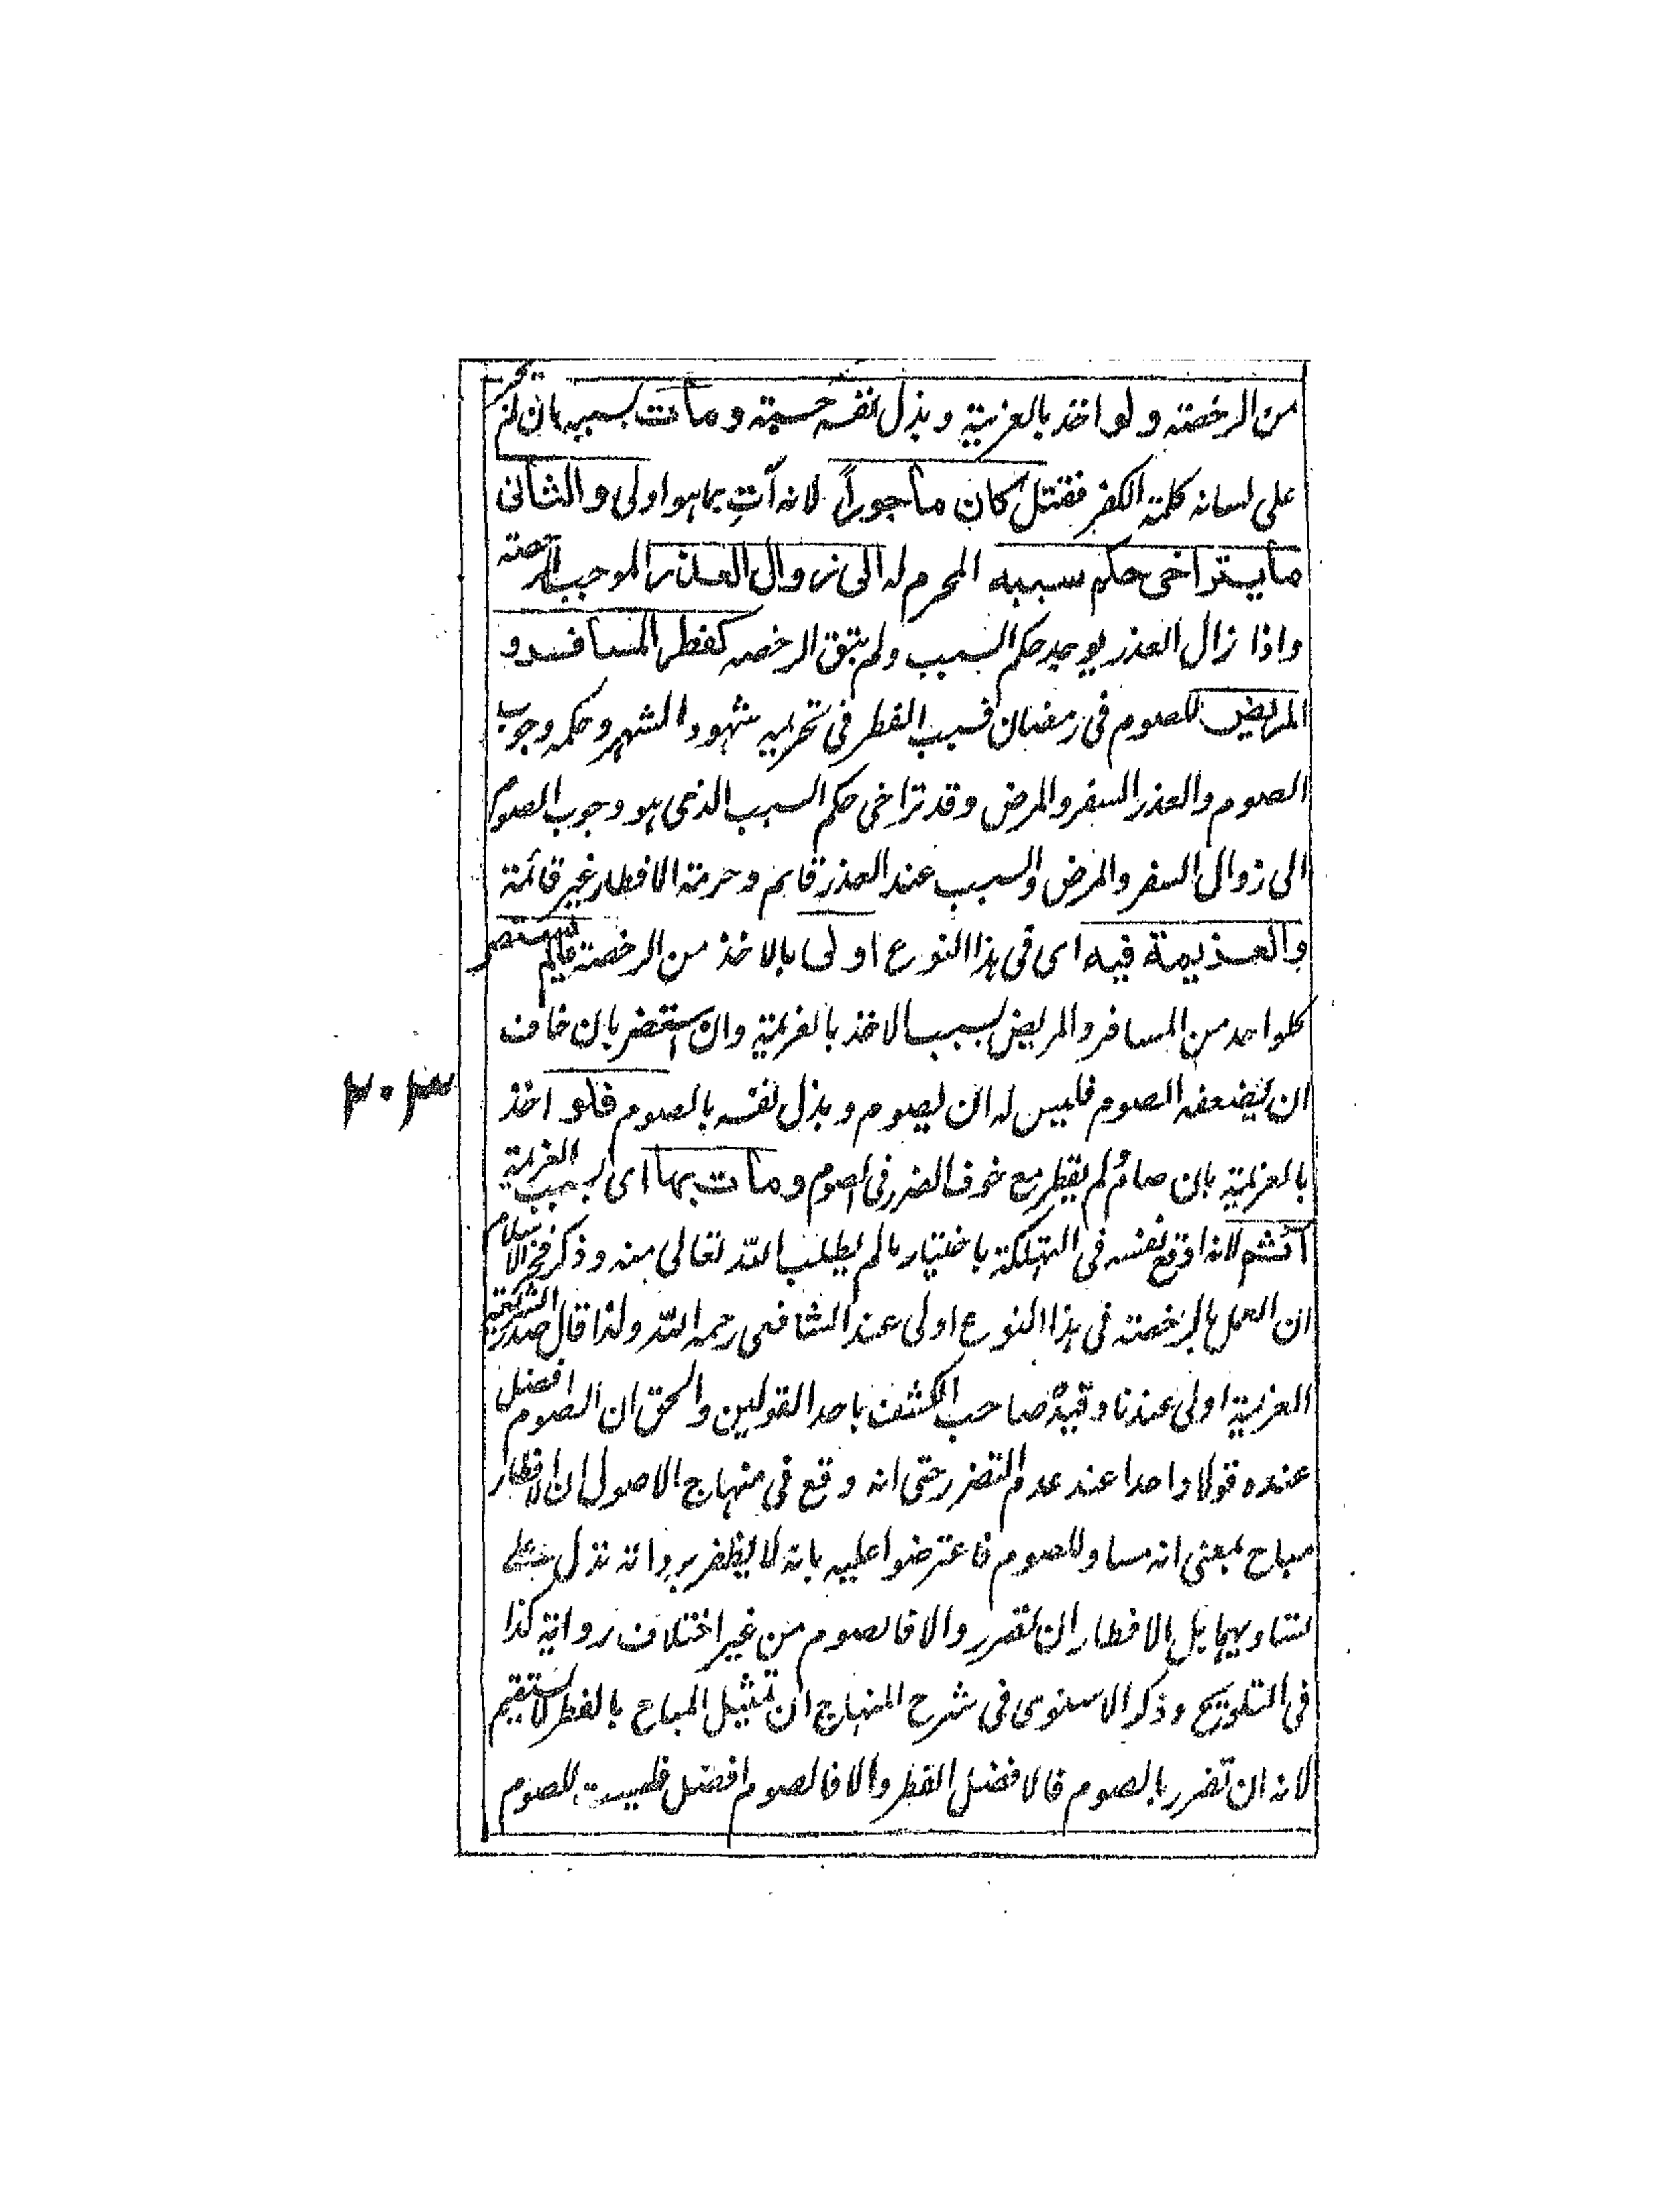 من الرخصة ولو اخذ بالعزيمة وبذل نفسه حسبة ومات بسببه بان لم يجر
على لسانه كلمة الكفر فقتل كان ماجوراً لانه آتٍ بما هو اولى والثانى
ما يتراخى حكم سببه المحرم له الى زوال العذر الموجب للرخصة
واذا زال العذر يوجد حكم السبب ولم تبق الرخصه كفطر المسافر و
المريض للصوم فى رمضان فسبب الفطر فى تحريمه شهود الشهر وحكمه وجوب
الصوم والعذر السفر والمرض وقد تراخى حكم السبب الذى هو وجوب الصوم
الى زوال السفر والمرض والسبب عند العذر قائم وحرمة الافطار غير قائمة
والعزيمة فيه اى فى هذا النوع اولى بالاخذ من الرخصة مالم يستضر
كلواحد من المسافر والمريض بسبب الاخذ بالعزيمة وان استضر بان خاف
ان يضعفه الصوم فليس له ان يصوم وبذل نفسه بالصوم فلو اخذ
٢٠٣
بالعزيمة بان صام ولم يفطر مع خوف الضرر فى الصوم ومات بها اى بسبب العزيمة
آثم لانه اوقع نفسه فى التهلكة باختيار مالم يطلب الله تعالى منه وذكر فخر الاسلام
ان العمل بالرخصة فى هذا النوع اولى عند الشافعى رحمه الله ولذا قال صدر الشريعة
العزيمة اولى عندنا وقيده صاحب الكشف باحد القولين والحق ان الصوم افضل
عنده قولا واحدا عند عدم التضرر حتى انه وقع فى منهاج الاصول ان الافطار
مباح بمعنى انه مساو للصوم فاعترضوا عليه بانه لا يظفر برواية تدل على
تساويهما بل الافطار ان تضرر والا فالصوم من غير اختلاف رواية كذا
فى التلويح وذكر الاسنوى فى شرح المنهاج ان تمثيل المباح بالفطر لا يستقيم
لانه ان تضرر بالصوم فالافضل الفطر والا فالصوم افضل فليست للصوم